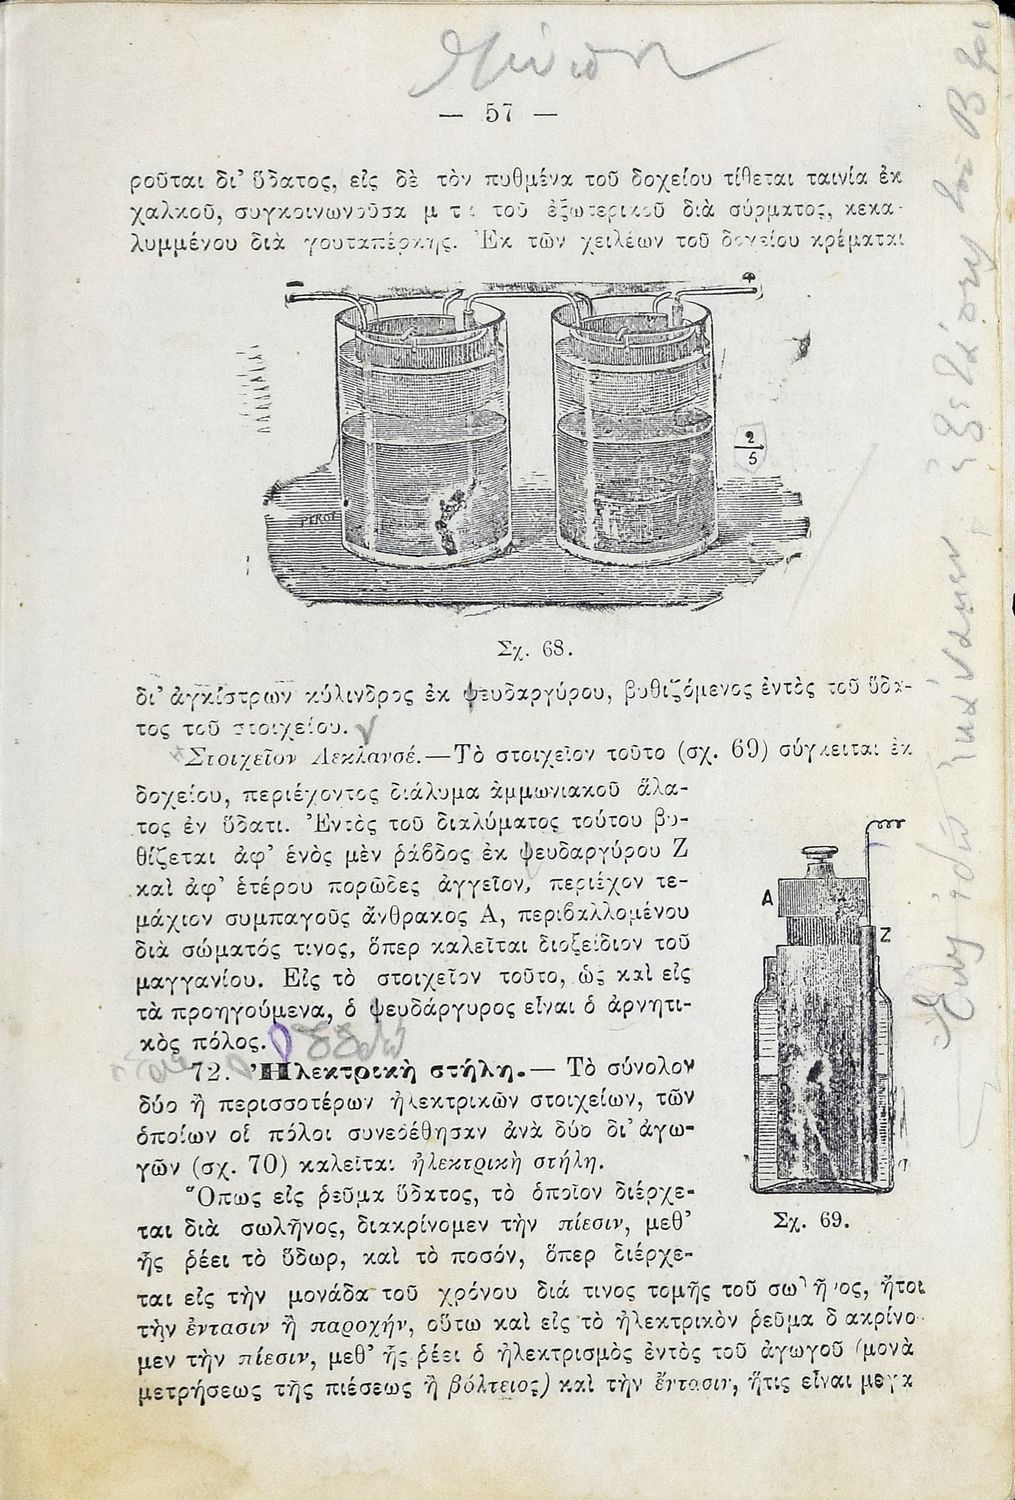 — 57 —
ροῦται δι' ὕδατος, εἰς δὲ τὸν πυθμένα τοῦ δοχείου τίθεται ταινία ἐκ
χαλκοῦ, συγκοινωνοῦσα τοῦ ἐξωτερικοῦ διὰ σύρματος, κεκα-
λυμμένου διὰ γουταπέρκης. Ἐκ τῶν χειλέων τοῦ δοχείου κρέμαται
− +
2
5
PEROT
Σχ. 68.
δι' ἀγκίστρων κύλινδρος ἐκ ψευδαργύρου, βυθιζόμενος ἐντὸς τοῦ ὕδα-
τος τοῦ στοιχείου.
Στοιχεῖον Λεκλανσέ.—Τὸ στοιχεῖον τοῦτο (σχ. 69) σύγκειται ἐκ
δοχείου, περιέχοντος διάλυμα ἀμμωνιακοῦ ἅλα-
τος ἐν ὕδατι. Ἐντὸς τοῦ διαλύματος τούτου βυ-
θίζεται ἀφ' ἑνὸς μὲν ῥάβδος ἐκ ψευδαργύρου Ζ
καὶ ἀφ' ἑτέρου πορῶδες ἀγγεῖον, περιέχον τε-
μάχιον συμπαγοῦς ἄνθρακος Α, περιβαλλομένου
διὰ σώματός τινος, ὅπερ καλεῖται διοξείδιον τοῦ
μαγγανίου. Εἰς τὸ στοιχεῖον τοῦτο, ὡς καὶ εἰς
τὰ προηγούμενα, ὁ ψευδάργυρος εἶναι ὁ ἀρνητι-
κὸς πόλος.
A
Z
Σχ. 69.
72. Ἠλεκτρικὴ στήλη.— Τὸ σύνολον
δύο ἢ περισσοτέρων ἠλεκτρικῶν στοιχείων, τῶν
ὁποίων οἱ πόλοι συνεδέθησαν ἀνὰ δύο δι' ἀγω-
γῶν (σχ. 70) καλεῖται ἠλεκτρικὴ στήλη.
Ὅπως εἰς ῥεῦμα ὕδατος, τὸ ὁποῖον διέρχε-
ται διὰ σωλῆνος, διακρίνομεν τὴν πίεσιν, μεθ'
ἧς ῥέει τὸ ὕδωρ, καὶ τὸ ποσόν, ὅπερ διέρχε-
ται εἰς τὴν μονάδα τοῦ χρόνου διά τινος τομῆς τοῦ σωλῆνος, ἤτοι
τὴν ἔντασιν ἢ παροχήν, οὕτω καὶ εἰς τὸ ἠλεκτρικὸν ῥεῦμα διακρίνο-
μεν τὴν πίεσιν, μεθ' ἧς ῥέει ὁ ἠλεκτρισμὸς ἐντὸς τοῦ ἀγωγοῦ (μονὰς
μετρήσεως τῆς πιέσεως ἢ βόλτειος) καὶ τὴν ἔντασιν, ἥτις εἶναι